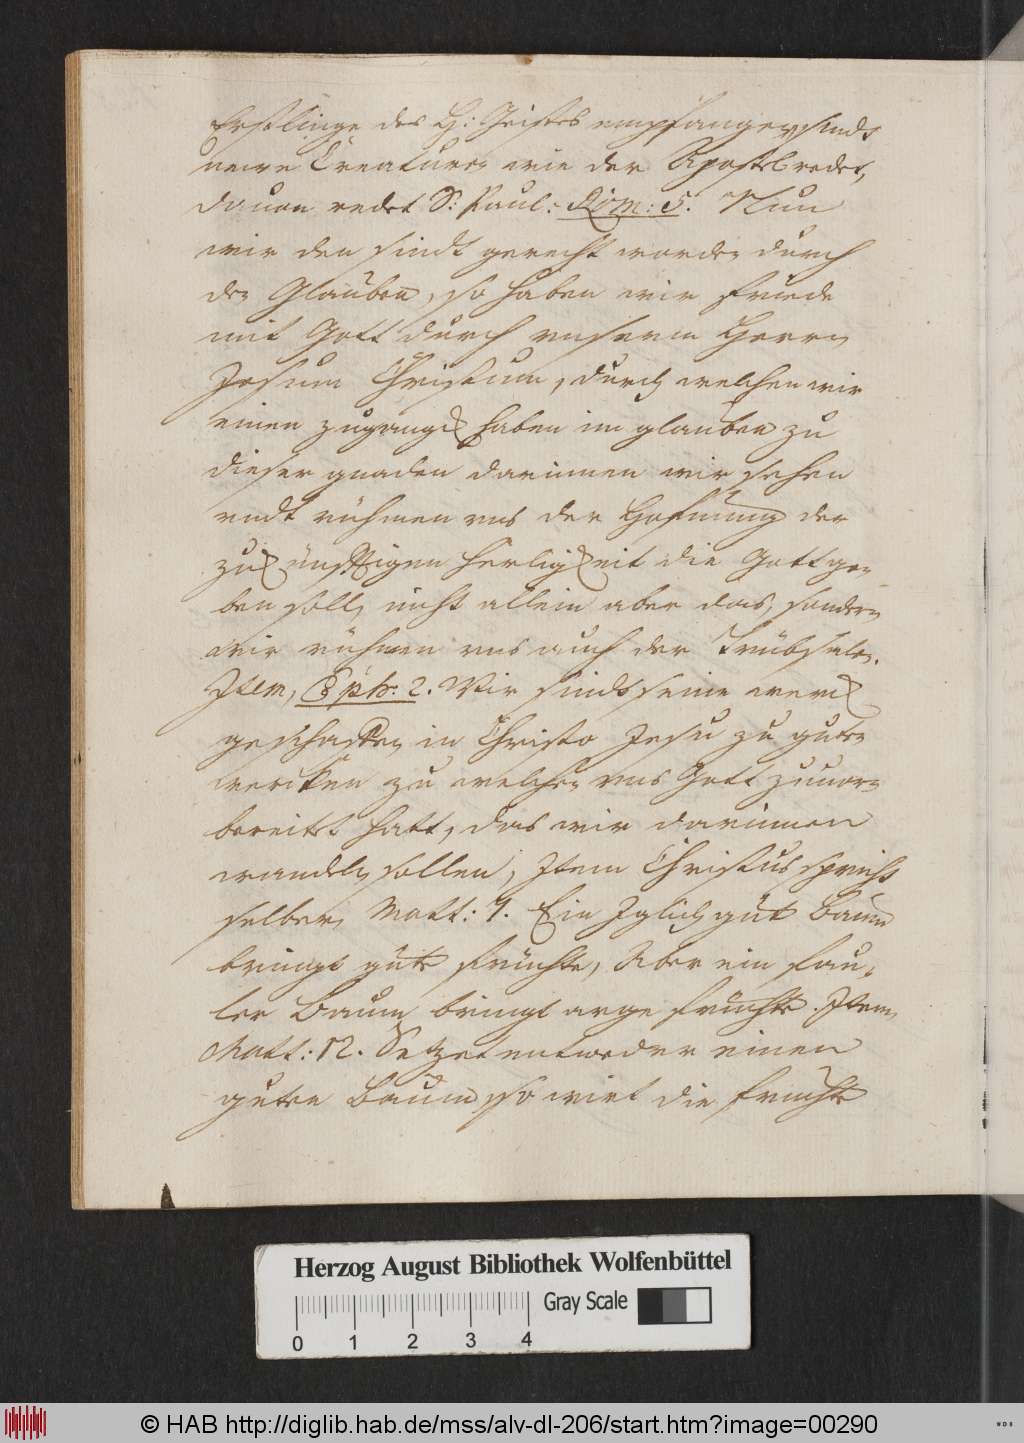 Erstlinge des H: Geistes empfangen, sindt
newe Creaturen wie der Apostel redet,
dauon redet S: Paul: Röm: 5. Nun
wir den sindt gerecht worden durch
den Glauben, so haben wir friede
mit Gott durch vnserm Herrn
Jesum Christum, durch welchen wir
einen zugangk haben im glauben zu
dieser gnaden darinnen wir stehen
vndt rühmen vns der Hofnung der
zukünfftigen herligkeit die Gott ge-
ben soll, nicht allein aber das, sondern
wir rühmen vns auch der Trübsalen.
Item, Eph: 2. Wir sindt seine werck
geschaffen in Christo Jesu zu guten
wercken zu welchen vns Gott zuuorn
bereitet hatt, das wir darinnen
wandeln sollen, Item Christus spricht
selber, Matt: 7. Ein Iglich gut Baum
bringt gute früchte, Aber ein fau-
ler Baum bringt arge früchte. Item,
Matt: 12. Setzet entweder einen
guten Baum, so wirt die frucht
Herzog August Bibliothek Wolfenbüttel
Gray Scale
0 1 2 3 4
© HAB http://diglib.hab.de/mss/alv-dl-206/start.htm?image=00290